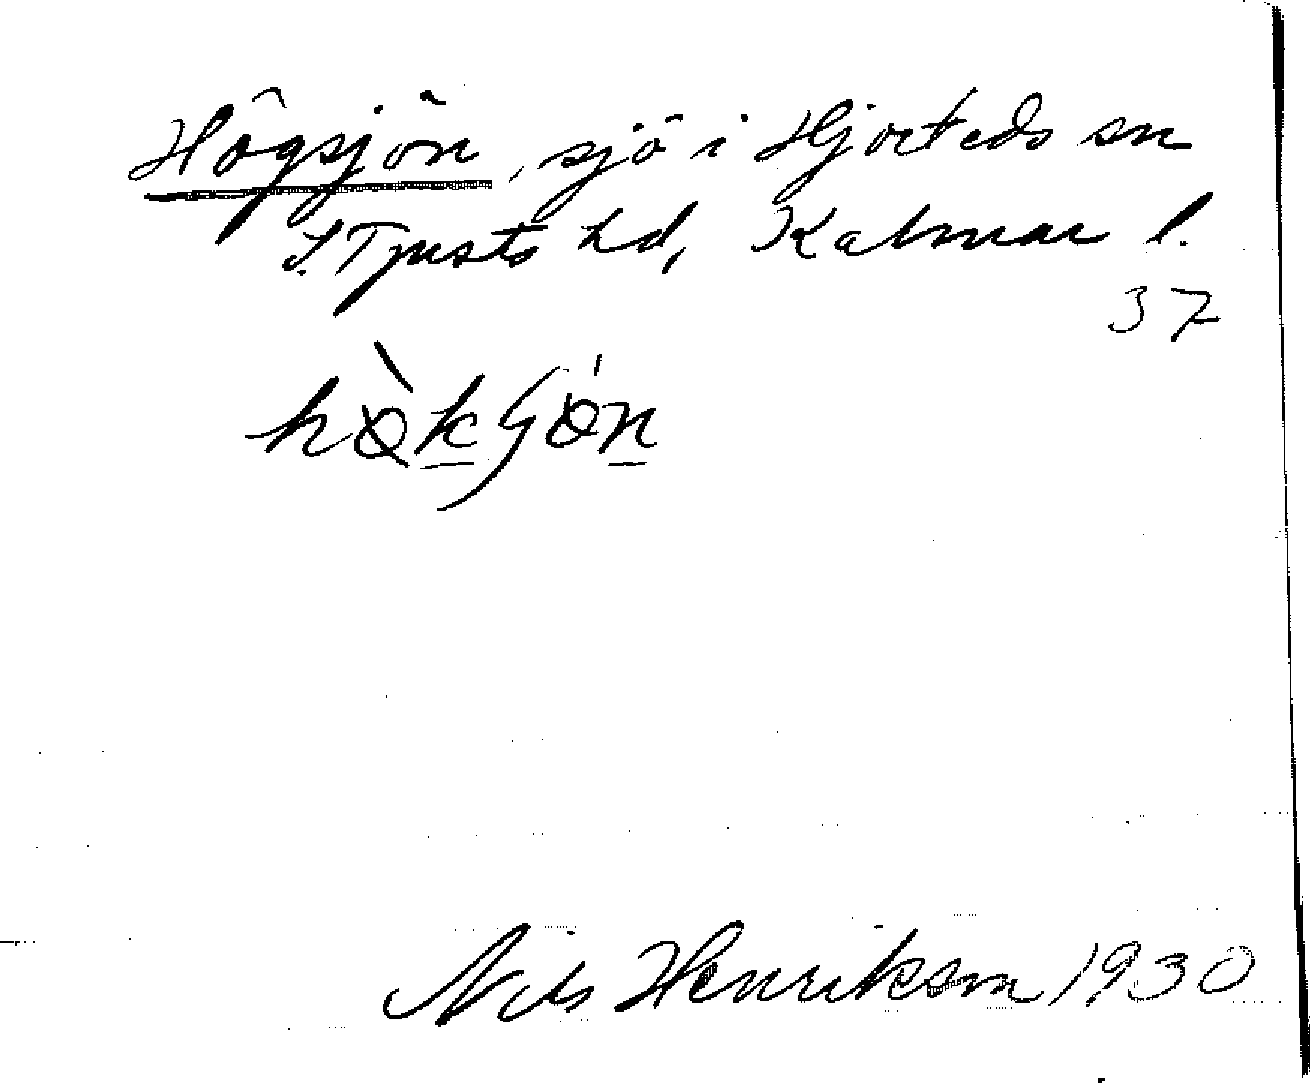 Högsjön, sjö i Hjorteds sn
S. Tjusts hd, Kalmar l.
37
Nils Henrikson 1930